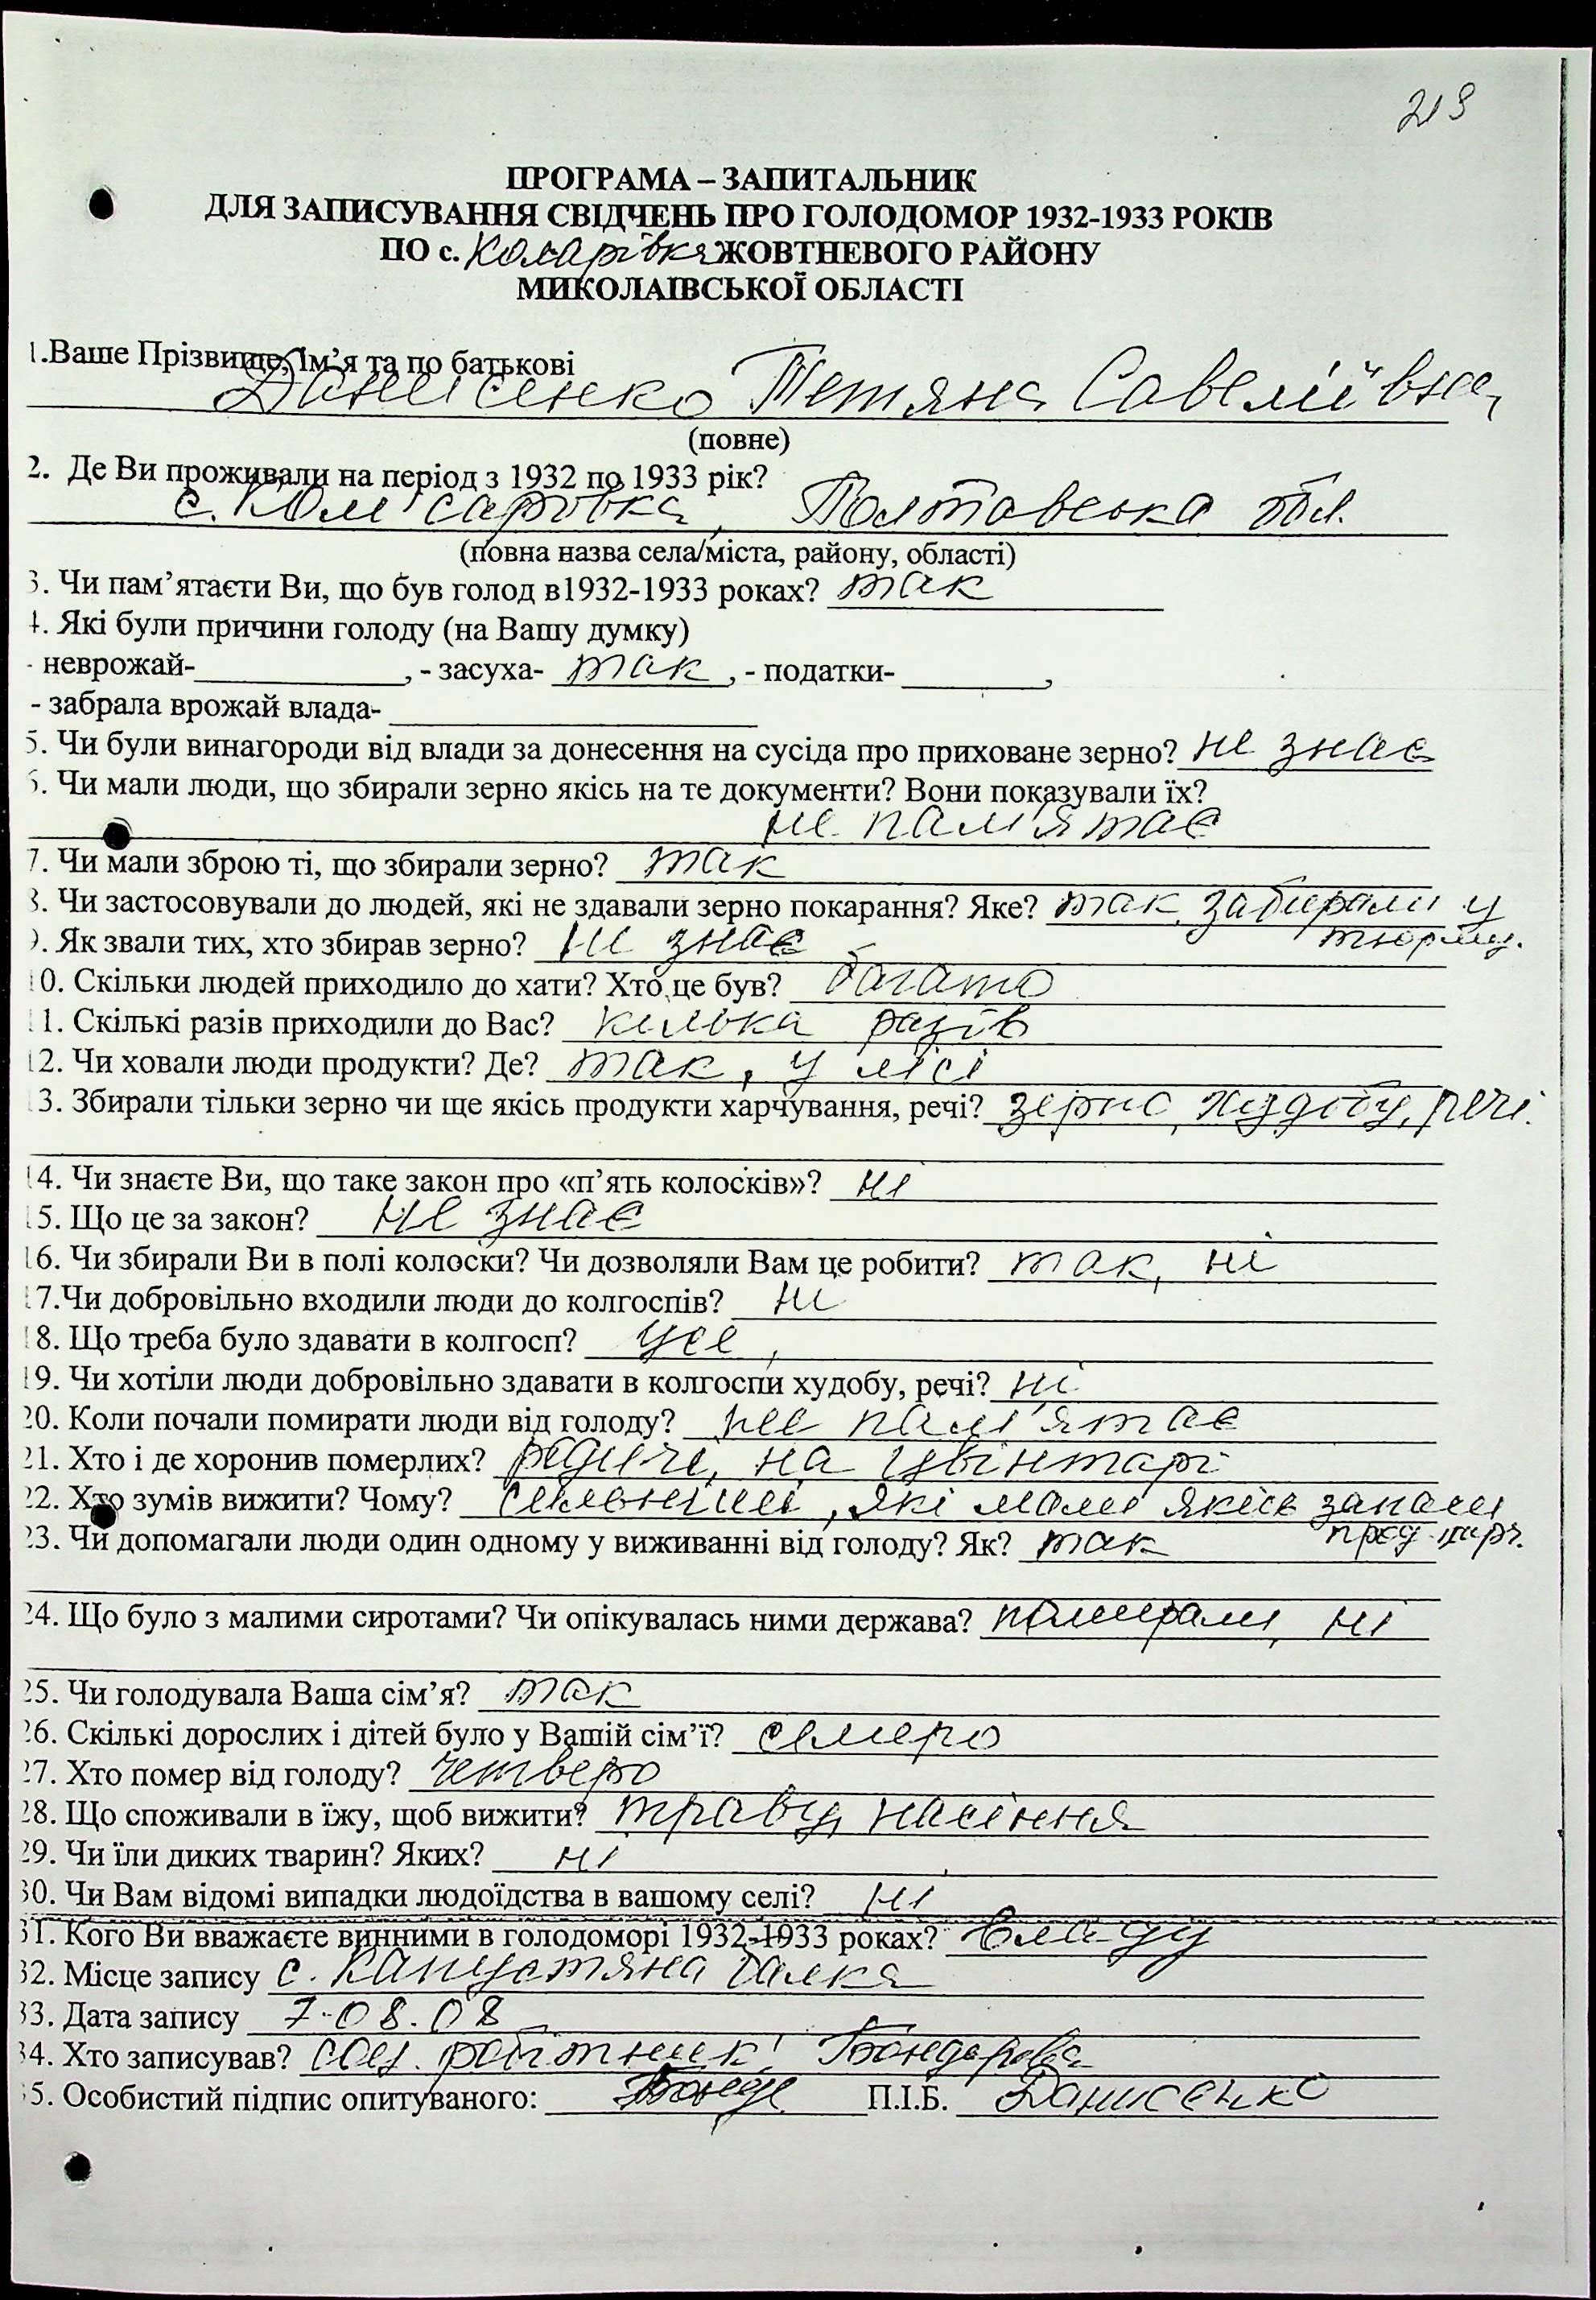 219
ПРОГРАМА – ЗАПИТАЛЬНИК
ДЛЯ ЗАПИСУВАННЯ СВІДЧЕНЬ ПРО ГОЛОДОМОР 1932-1933 РОКІВ
ПО с. Коларівка ЖОВТНЕВОГО РАЙОНУ
МИКОЛАЇВСЬКОЇ ОБЛАСТІ
1.Ваше Прізвище, Ім’я та по батькові
Данисенко Тетяна Савеліївна
(повне)
2. Де Ви проживали на період з 1932 по 1933 рік?
с. Комісаровка, Полтавська обл.
(повна назва села/міста, району, області)
3. Чи пам’ятаєти Ви, що був голод в1932-1933 роках? так
4. Які були причини голоду (на Вашу думку)
- неврожай- , - засуха- так , - податки- ,
- забрала врожай влада-
5. Чи були винагороди від влади за донесення на сусіда про приховане зерно? не знає
6. Чи мали люди, що збирали зерно якісь на те документи? Вони показували їх?
не пам'ятає
7. Чи мали зброю ті, що збирали зерно? так
8. Чи застосовували до людей, які не здавали зерно покарання? Яке? так, забирали у
тюрму.
9. Як звали тих, хто збирав зерно? не знає
10. Скільки людей приходило до хати? Хто це був? багато
11. Скількі разів приходили до Вас? кілька разів
12. Чи ховали люди продукти? Де? так, у лісі
13. Збирали тільки зерно чи ще якісь продукти харчування, речі? зерно, худобу, речі.
14. Чи знаєте Ви, що таке закон про «п’ять колосків»? ні
15. Що це за закон? не знає
16. Чи збирали Ви в полі колоски? Чи дозволяли Вам це робити? так, ні
17.Чи добровільно входили люди до колгоспів? ні
18. Що треба було здавати в колгосп? усе,
19. Чи хотіли люди добровільно здавати в колгоспи худобу, речі? ні
20. Коли почали помирати люди від голоду? не пам'ятає
21. Хто і де хоронив померлих? родичі, на цвінтарі
22. Хто зумів вижити? Чому? сильніші, які мали якісь запаси
прод. харч.
23. Чи допомагали люди один одному у виживанні від голоду? Як? так
24. Що було з малими сиротами? Чи опікувалась ними держава? помирали, ні
25. Чи голодувала Ваша сім’я? так
26. Скількі дорослих і дітей було у Вашій сім’ї? семеро
27. Хто помер від голоду? четверо
28. Що споживали в їжу, щоб вижити? траву, насіння
29. Чи їли диких тварин? Яких? ні
30. Чи Вам відомі випадки людоїдства в вашому селі? ні
31. Кого Ви вважаєте винними в голодоморі 1932-1933 роках? владу
32. Місце запису с. Капустяна балка
33. Дата запису 7.08.08
34. Хто записував? соц. робітник Бондарєва
35. Особистий підпис опитуваного: П.І.Б. Данисенко